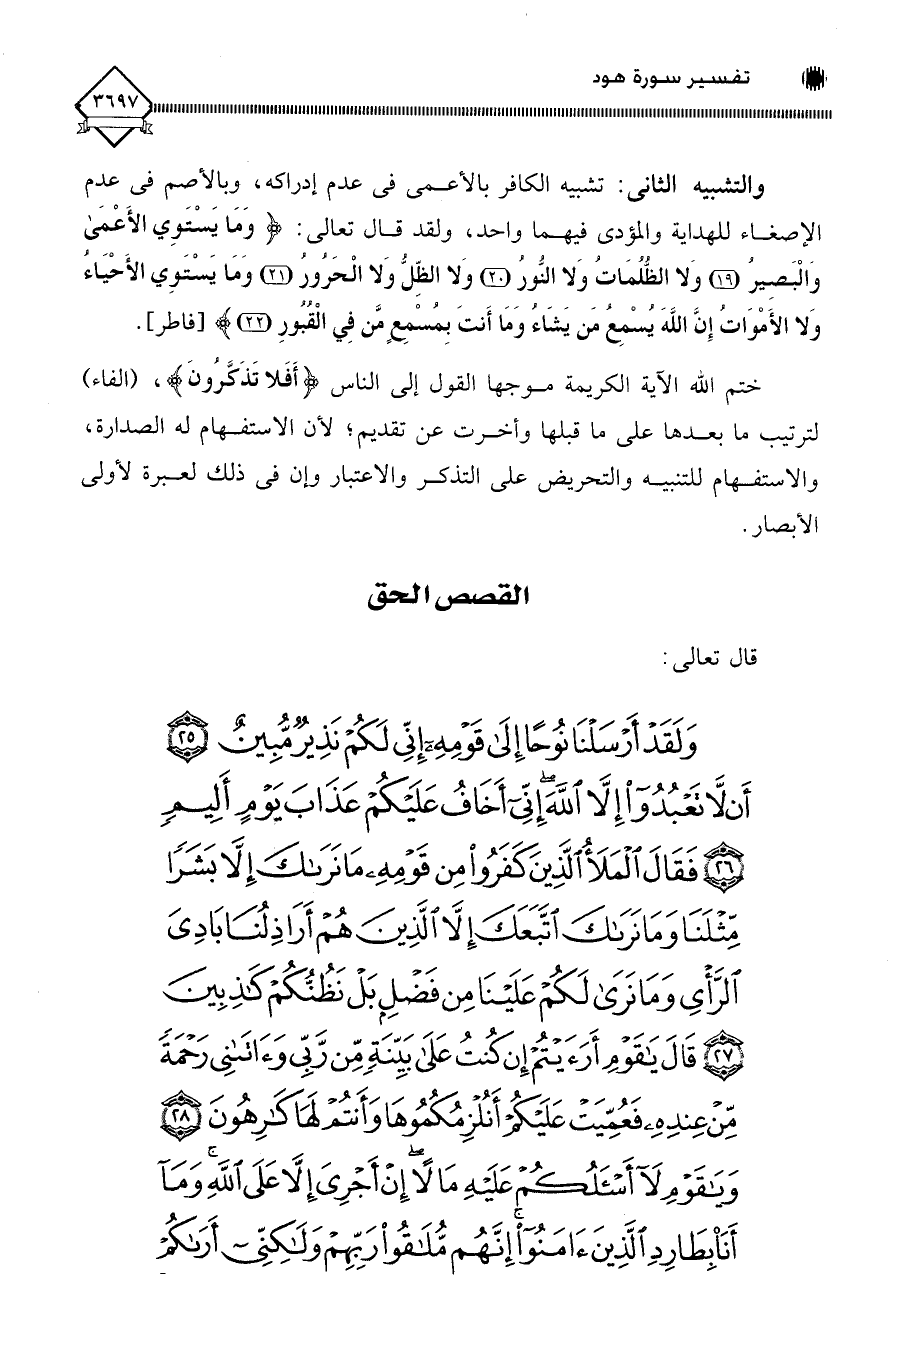 تفسير سورة هود
٣٦٩٧
والتشبيه الثانى: تشبيه الكافر بالأعمى فى عدم إدراكه، وبالأصم فى عدم
الإصغاء للهداية والمؤدى فيهما واحد، ولقد قال تعالى: ﴿ وَمَا يَسْتَوِي الأَعْمَىٰ
وَالْبَصِيرُ (١٩) وَلا الظُّلُمَاتُ وَلا النُّورُ (٢٠) وَلا الظِّلُّ وَلا الْحَرُورُ (٢١) وَمَا يَسْتَوِي الأَحْيَاءُ
وَلا الأَمْوَاتُ إِنَّ اللَّهَ يُسْمِعُ مَن يَشَاءُ وَمَا أَنتَ بِمُسْمِعٍ مَّن فِي الْقُبُورِ (٢٢)﴾ [فاطر].
ختم الله الآية الكريمة موجها القول إلى الناس ﴿أَفَلا تَذَكَّرُونَ﴾، (الفاء)
لترتيب ما بعدها على ما قبلها وأخرت عن تقديم؛ لأن الاستفهام له الصدارة،
والاستفهام للتنبيه والتحريض على التذكر والاعتبار وإن فى ذلك لعبرة لأولى
الأبصار.
القصص الحق
قال تعالى:
وَلَقَدْ أَرْسَلْنَا نُوحًا إِلَىٰ قَوْمِهِۦٓ إِنِّى لَكُمْ نَذِيرٌ مُّبِينٌ ٢٥
أَن لَّا تَعْبُدُوٓا۟ إِلَّا ٱللَّهَ ۖ إِنِّىٓ أَخَافُ عَلَيْكُمْ عَذَابَ يَوْمٍ أَلِيمٍ
٢٦ فَقَالَ ٱلْمَلَأُ ٱلَّذِينَ كَفَرُوا۟ مِن قَوْمِهِۦ مَا نَرَىٰكَ إِلَّا بَشَرًا
مِّثْلَنَا وَمَا نَرَىٰكَ ٱتَّبَعَكَ إِلَّا ٱلَّذِينَ هُمْ أَرَاذِلُنَا بَادِىَ
ٱلرَّأْىِ وَمَا نَرَىٰ لَكُمْ عَلَيْنَا مِن فَضْلٍ بَلْ نَظُنُّكُمْ كَـٰذِبِينَ
٢٧ قَالَ يَـٰقَوْمِ أَرَءَيْتُمْ إِن كُنتُ عَلَىٰ بَيِّنَةٍ مِّن رَّبِّى وَءَاتَىٰنِى رَحْمَةً
مِّنْ عِندِهِۦ فَعُمِّيَتْ عَلَيْكُمْ أَنُلْزِمُكُمُوهَا وَأَنتُمْ لَهَا كَـٰرِهُونَ ٢٨
وَيَـٰقَوْمِ لَآ أَسْـَٔلُكُمْ عَلَيْهِ مَالًا ۖ إِنْ أَجْرِىَ إِلَّا عَلَى ٱللَّهِ ۚ وَمَآ
أَنَا۠ بِطَارِدِ ٱلَّذِينَ ءَامَنُوٓا۟ ۚ إِنَّهُم مُّلَـٰقُوا۟ رَبِّهِمْ وَلَـٰكِنِّىٓ أَرَىٰكُمْ